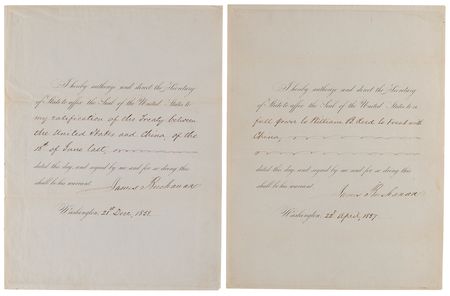 I hereby authorize and direct the Secretary
of State to affix the Seal of the United States to
my ratification of the Treaty between
the United States and China of the
18th of June last,
dated this day, and signed by me and for so doing this
shall be his warrant.
James Buchanan
Washington, 21st Decr, 1858.
I hereby authorize and direct the Secretary
of State to affix the Seal of the United States to a
full power to William B. Reed to treat with
China,
dated this day, and signed by me and for so doing this
shall be his warrant.
James Buchanan
Washington, 22d April, 1857.